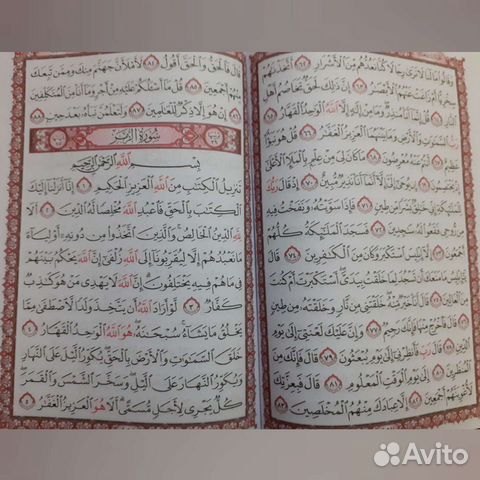 وَقَالُوا۟ مَا لَنَا لَا نَرَىٰ رِجَالًا كُنَّا نَعُدُّهُم مِّنَ ٱلْأَشْرَارِ ٦٢ أَتَّخَذْنَٰهُمْ
سِخْرِيًّا أَمْ زَاغَتْ عَنْهُمُ ٱلْأَبْصَٰرُ ٦٣ إِنَّ ذَٰلِكَ لَحَقٌّ تَخَاصُمُ أَهْلِ
ٱلنَّارِ ٦٤ قُلْ إِنَّمَآ أَنَا۠ مُنذِرٌ وَمَا مِنْ إِلَٰهٍ إِلَّا ٱللَّهُ ٱلْوَٰحِدُ ٱلْقَهَّارُ ٦٥
رَبُّ ٱلسَّمَٰوَٰتِ وَٱلْأَرْضِ وَمَا بَيْنَهُمَا ٱلْعَزِيزُ ٱلْغَفَّٰرُ ٦٦ قُلْ هُوَ نَبَؤٌا۟
عَظِيمٌ ٦٧ أَنتُمْ عَنْهُ مُعْرِضُونَ ٦٨ مَا كَانَ لِىَ مِنْ عِلْمٍۭ بِٱلْمَلَإِ ٱلْأَعْلَىٰٓ
إِذْ يَخْتَصِمُونَ ٦٩ إِن يُوحَىٰٓ إِلَىَّ إِلَّآ أَنَّمَآ أَنَا۠ نَذِيرٌ مُّبِينٌ ٧٠ إِذْ قَالَ رَبُّكَ
لِلْمَلَٰٓئِكَةِ إِنِّى خَٰلِقٌۢ بَشَرًا مِّن طِينٍ ٧١ فَإِذَا سَوَّيْتُهُۥ وَنَفَخْتُ فِيهِ
مِن رُّوحِى فَقَعُوا۟ لَهُۥ سَٰجِدِينَ ٧٢ فَسَجَدَ ٱلْمَلَٰٓئِكَةُ كُلُّهُمْ
أَجْمَعُونَ ٧٣ إِلَّآ إِبْلِيسَ ٱسْتَكْبَرَ وَكَانَ مِنَ ٱلْكَٰفِرِينَ ٧٤ قَالَ
يَٰٓإِبْلِيسُ مَا مَنَعَكَ أَن تَسْجُدَ لِمَا خَلَقْتُ بِيَدَىَّ أَسْتَكْبَرْتَ أَمْ كُنتَ
مِنَ ٱلْعَالِينَ ٧٥ قَالَ أَنَا۠ خَيْرٌ مِّنْهُ خَلَقْتَنِى مِن نَّارٍ وَخَلَقْتَهُۥ مِن طِينٍ
٧٦ قَالَ فَٱخْرُجْ مِنْهَا فَإِنَّكَ رَجِيمٌ ٧٧ وَإِنَّ عَلَيْكَ لَعْنَتِىٓ إِلَىٰ يَوْمِ
ٱلدِّينِ ٧٨ قَالَ رَبِّ فَأَنظِرْنِىٓ إِلَىٰ يَوْمِ يُبْعَثُونَ ٧٩ قَالَ فَإِنَّكَ مِنَ
ٱلْمُنظَرِينَ ٨٠ إِلَىٰ يَوْمِ ٱلْوَقْتِ ٱلْمَعْلُومِ ٨١ قَالَ فَبِعِزَّتِكَ
لَأُغْوِيَنَّهُمْ أَجْمَعِينَ ٨٢ إِلَّا عِبَادَكَ مِنْهُمُ ٱلْمُخْلَصِينَ ٨٣
قَالَ فَٱلْحَقُّ وَٱلْحَقَّ أَقُولُ ٨٤ لَأَمْلَأَنَّ جَهَنَّمَ مِنكَ وَمِمَّن تَبِعَكَ
مِنْهُمْ أَجْمَعِينَ ٨٥ قُلْ مَآ أَسْـَٔلُكُمْ عَلَيْهِ مِنْ أَجْرٍ وَمَآ أَنَا۠ مِنَ ٱلْمُتَكَلِّفِينَ
٨٦ إِنْ هُوَ إِلَّا ذِكْرٌ لِّلْعَٰلَمِينَ ٨٧ وَلَتَعْلَمُنَّ نَبَأَهُۥ بَعْدَ حِينٍۭ ٨٨
سُورَةُ ٱلزُّمَرِ
بِسْمِ ٱللَّهِ ٱلرَّحْمَٰنِ ٱلرَّحِيمِ
تَنزِيلُ ٱلْكِتَٰبِ مِنَ ٱللَّهِ ٱلْعَزِيزِ ٱلْحَكِيمِ ١ إِنَّآ أَنزَلْنَآ إِلَيْكَ
ٱلْكِتَٰبَ بِٱلْحَقِّ فَٱعْبُدِ ٱللَّهَ مُخْلِصًا لَّهُ ٱلدِّينَ ٢ أَلَا
لِلَّهِ ٱلدِّينُ ٱلْخَالِصُ وَٱلَّذِينَ ٱتَّخَذُوا۟ مِن دُونِهِۦٓ أَوْلِيَآءَ
مَا نَعْبُدُهُمْ إِلَّا لِيُقَرِّبُونَآ إِلَى ٱللَّهِ زُلْفَىٰٓ إِنَّ ٱللَّهَ يَحْكُمُ بَيْنَهُمْ
فِى مَا هُمْ فِيهِ يَخْتَلِفُونَ إِنَّ ٱللَّهَ لَا يَهْدِى مَنْ هُوَ كَٰذِبٌ
كَفَّارٌ ٣ لَّوْ أَرَادَ ٱللَّهُ أَن يَتَّخِذَ وَلَدًا لَّٱصْطَفَىٰ مِمَّا
يَخْلُقُ مَا يَشَآءُ سُبْحَٰنَهُۥ هُوَ ٱللَّهُ ٱلْوَٰحِدُ ٱلْقَهَّارُ ٤
خَلَقَ ٱلسَّمَٰوَٰتِ وَٱلْأَرْضَ بِٱلْحَقِّ يُكَوِّرُ ٱلَّيْلَ عَلَى ٱلنَّهَارِ
وَيُكَوِّرُ ٱلنَّهَارَ عَلَى ٱلَّيْلِ وَسَخَّرَ ٱلشَّمْسَ وَٱلْقَمَرَ
كُلٌّ يَجْرِى لِأَجَلٍ مُّسَمًّى أَلَا هُوَ ٱلْعَزِيزُ ٱلْغَفَّٰرُ ٥
Avito